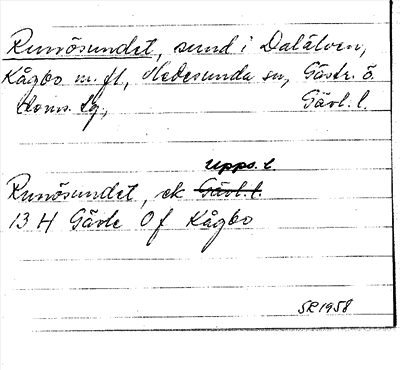 Runösundet, sund i Dalälven,
Kågbo m.fl., Hedesunda sn, Gästr. ö.
Horns. lg., Gävl. l.
Upps. l.
Runösundet, ek Gävl. l.
13 H Gävle 0 f Kågbo
SR 1958